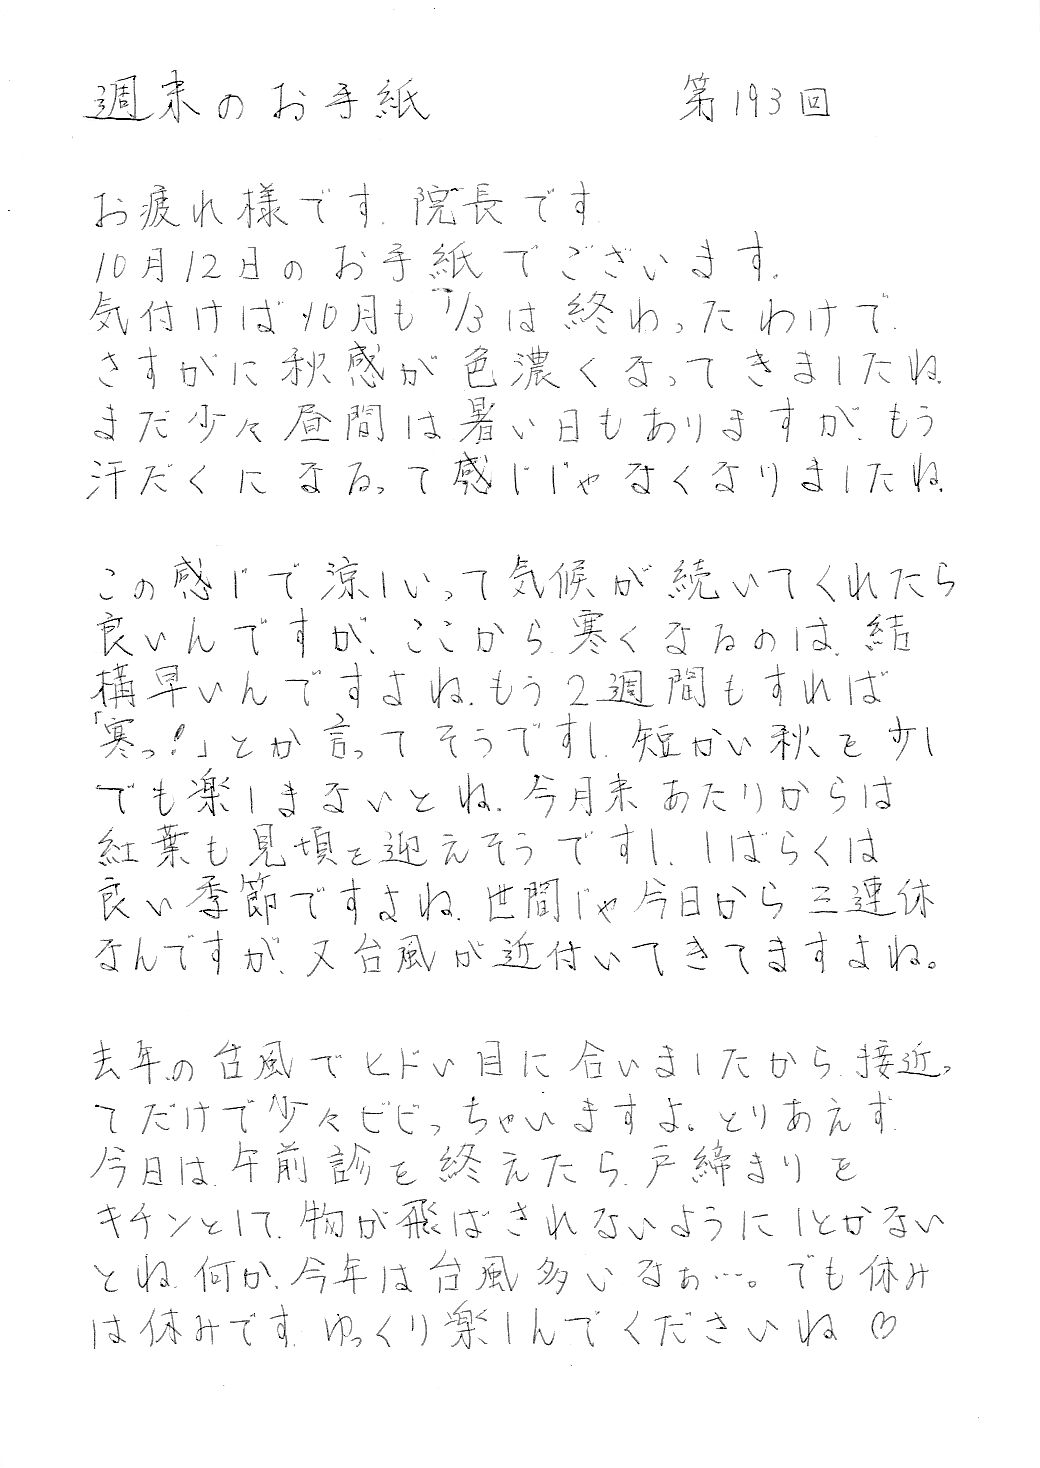 週末のお手紙 第193回
お疲れ様です.院長です.
10月12日のお手紙でございます.
気付けば10月も1/3は終わったわけで.
さすがに秋感が色濃くなってきましたね.
まだ少々昼間は暑い日もありますが、もう
汗だくになるって感じじゃなくなりましたね.
この感じで涼しいって気候が続いてくれたら
良いんですが、ここから寒くなるのは、結
構早いんですよね.もう2週間もすれば
「寒っ!」とか言ってそうですし.短かい秋を少し
でも楽しまないとね.今月末あたりからは
紅葉も見頃を迎えそうですし、しばらくは
良い季節ですよね.世間じゃ今日から三連休
なんですが、又台風が近付いてきてますよね。
去年の台風でヒドい目に合いましたから.接近っ
てだけで少々ビビっちゃいますよ。とりあえず
今日は、午前診を終えたら、戸締まりを
キチンとして、物が飛ばされないようにしとかない
とね.何か、今年は台風多いなぁ…。でも休み
は休みです.ゆっくり楽しんでくださいね♡